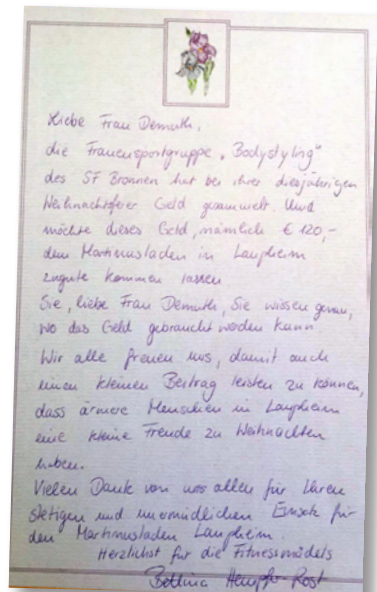 Liebe Frau Demuth,
die Frauensportgruppe „Bodystyling"
des SF Bronnen hat bei ihrer diesjährigen
Weihnachtsfeier Geld gesammelt. Und
möchte dieses Geld, nämlich € 120,-
dem Martinusladen in Laupheim
zugute kommen lassen
Sie, liebe Frau Demuth, Sie wissen genau,
wo das Geld gebraucht werden kann.
Wir alle freuen uns, damit auch
einen kleinen Beitrag leisten zu können,
dass ärmere Menschen in Laupheim
eine kleine Freude zu Weihnachten
haben.
Vielen Dank von uns allen für Ihren
stetigen und unermüdlichen Einsatz für
den Martinusladen Laupheim.
Herzlichst für die Fitnessmädels
Bettina